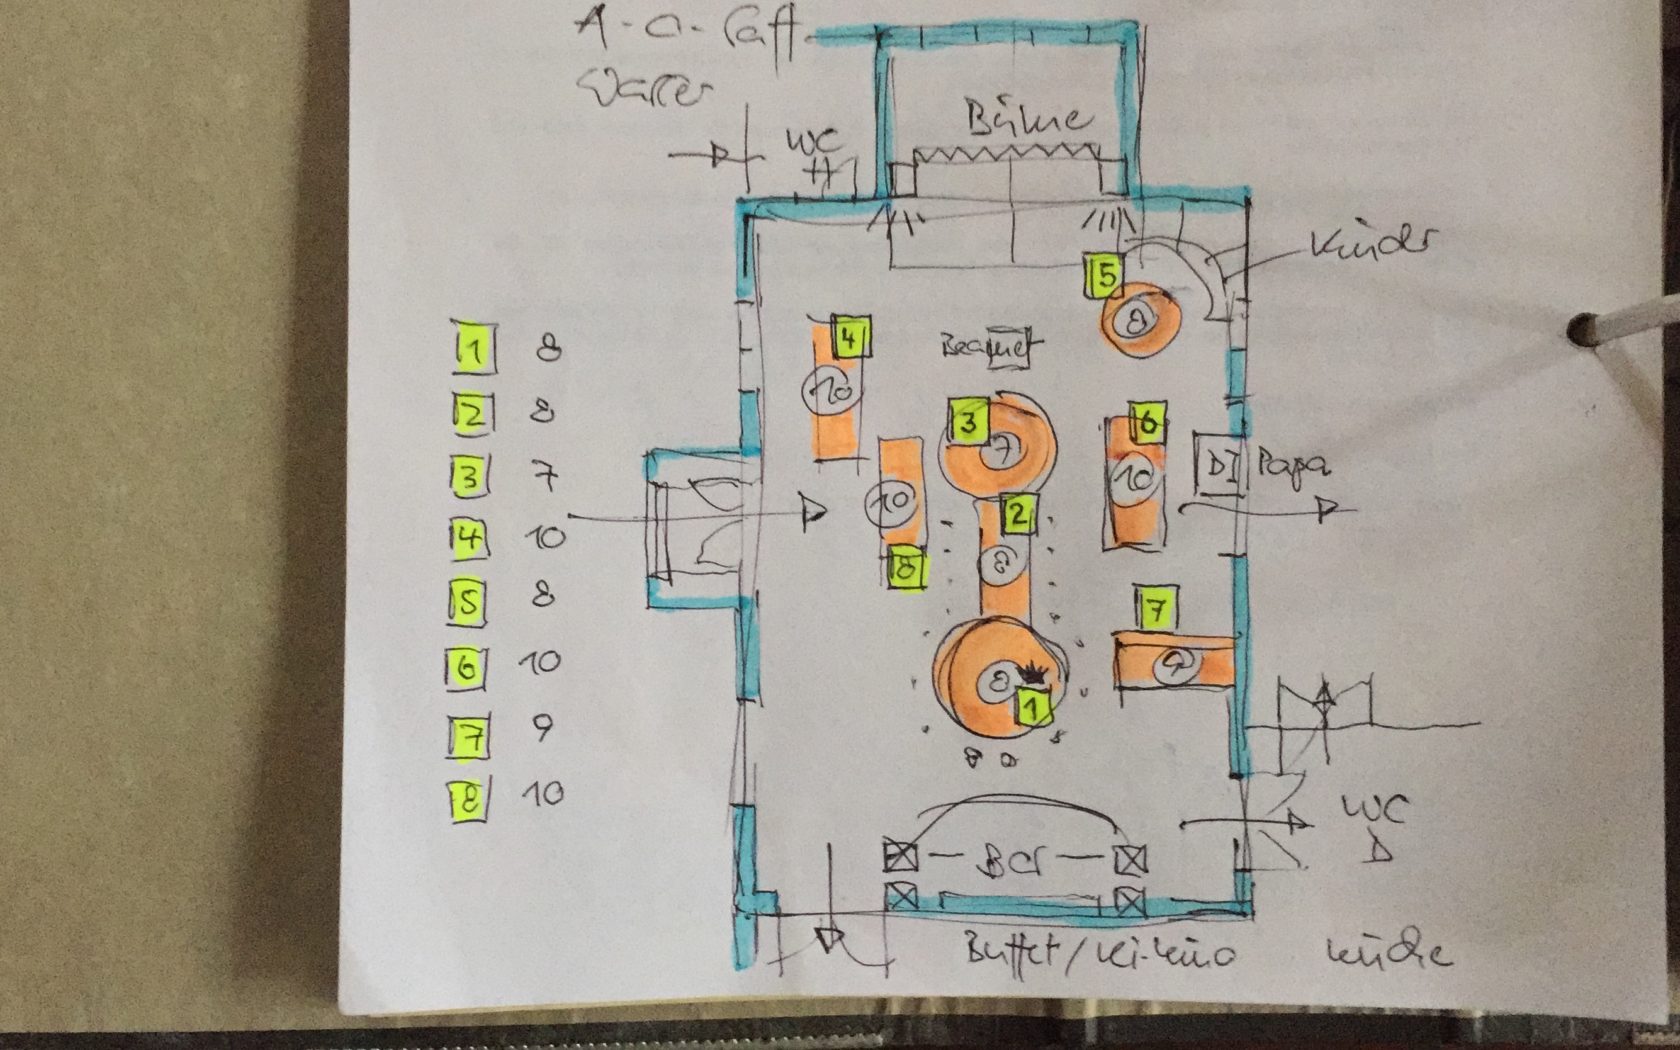 A-O-Saft
Wasser
WC
H
Bühne
Kinder
5
8
1 8
2 8
3 7
4 10
5 8
6 10
7 9
8 10
4
10
Beamer
3
7
6
10
DJ Papa
10
8
2
8
7
9
8
1
WC
D
Bar
Buffet/Ki-Kino
Küche